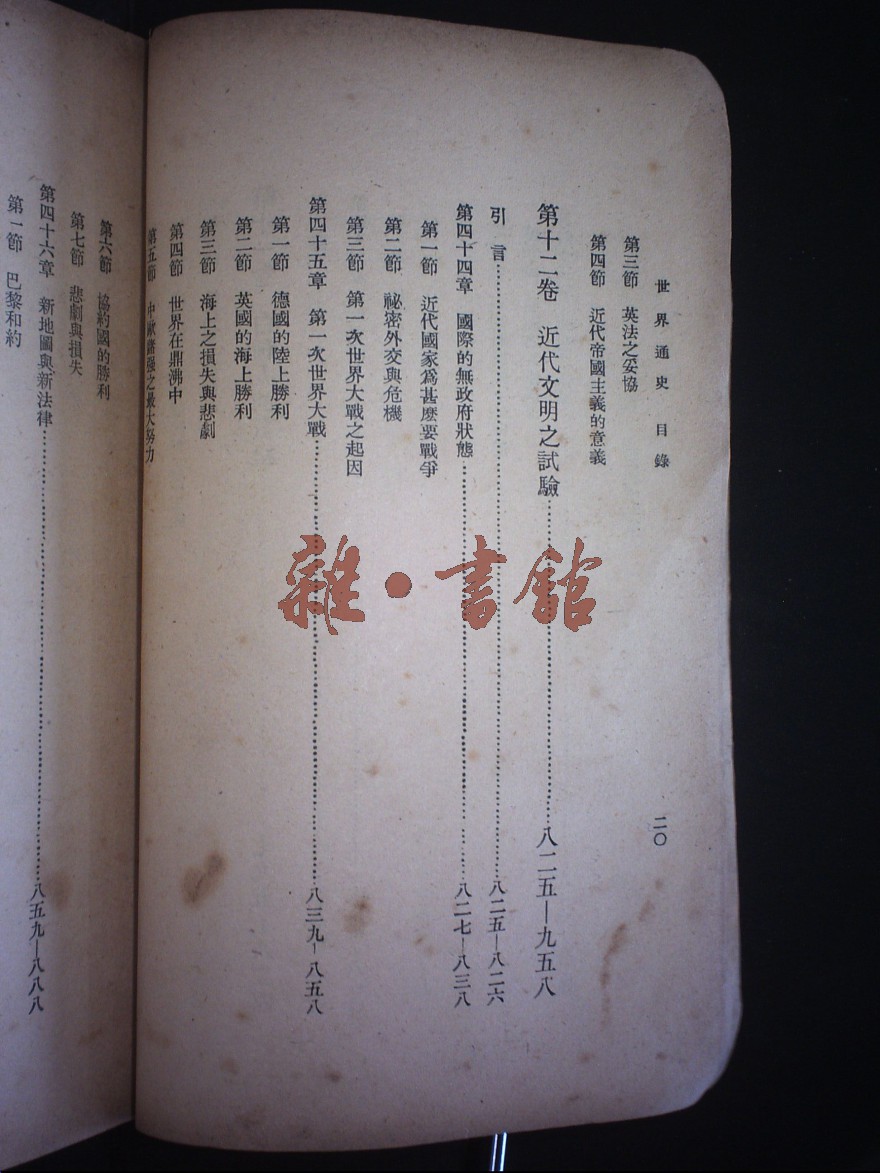 世界通史 目錄 二〇
第三節 英法之妥協
第四節 近代帝國主義的意義
第十二卷 近代文明之試驗……八二五—九五八
引言……八二五—八二六
第四十四章 國際的無政府狀態……八二七—八三八
第一節 近代國家爲甚麽要戰爭
第二節 祕密外交與危機
第三節 第一次世界大戰之起因
第四十五章 第一次世界大戰……八三九—八五八
第一節 德國的陸上勝利
第二節 英國的海上勝利
第三節 海上之損失與悲劇
第四節 世界在鼎沸中
第五節 中歐諸强之最大努力
第六節 協約國的勝利
第七節 悲劇與損失
第四十六章 新地圖與新法律……八五九—八八八
第一節 巴黎和約
雜·書館